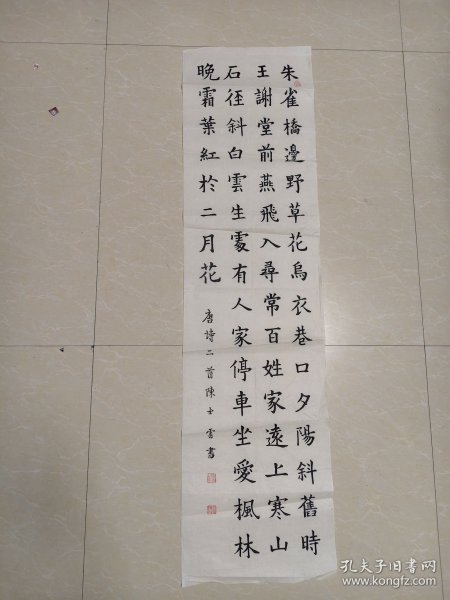 朱雀橋邊野草花烏衣巷口夕陽斜舊時
王謝堂前燕飛入尋常百姓家遠上寒山
石徑斜白雲生處有人家停車坐愛楓林
晚霜葉紅於二月花
唐詩二首陳士雲書
孔夫子旧书网
www.kongfz.com